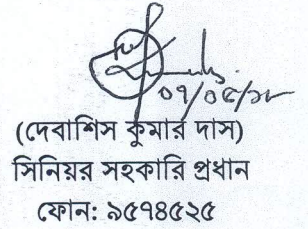 ০৭/০৫/১৮
(দেবাশিস কুমার দাস)
সিনিয়র সহকারি প্রধান
ফোন: ৯৫৭৪৫২৫